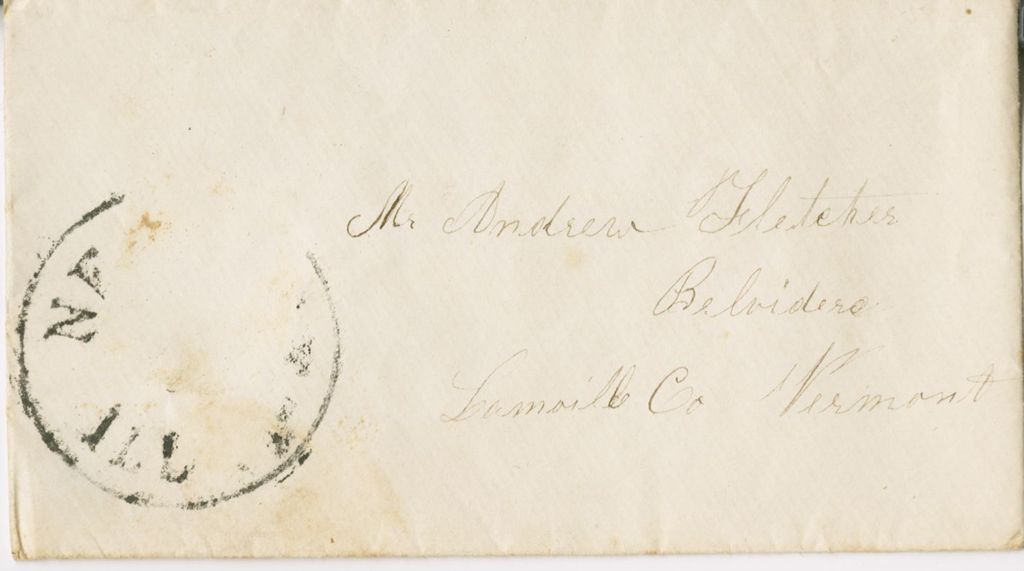 Mr Andrew Fletcher
Belvidere
Lamoill Co Vermont
NA